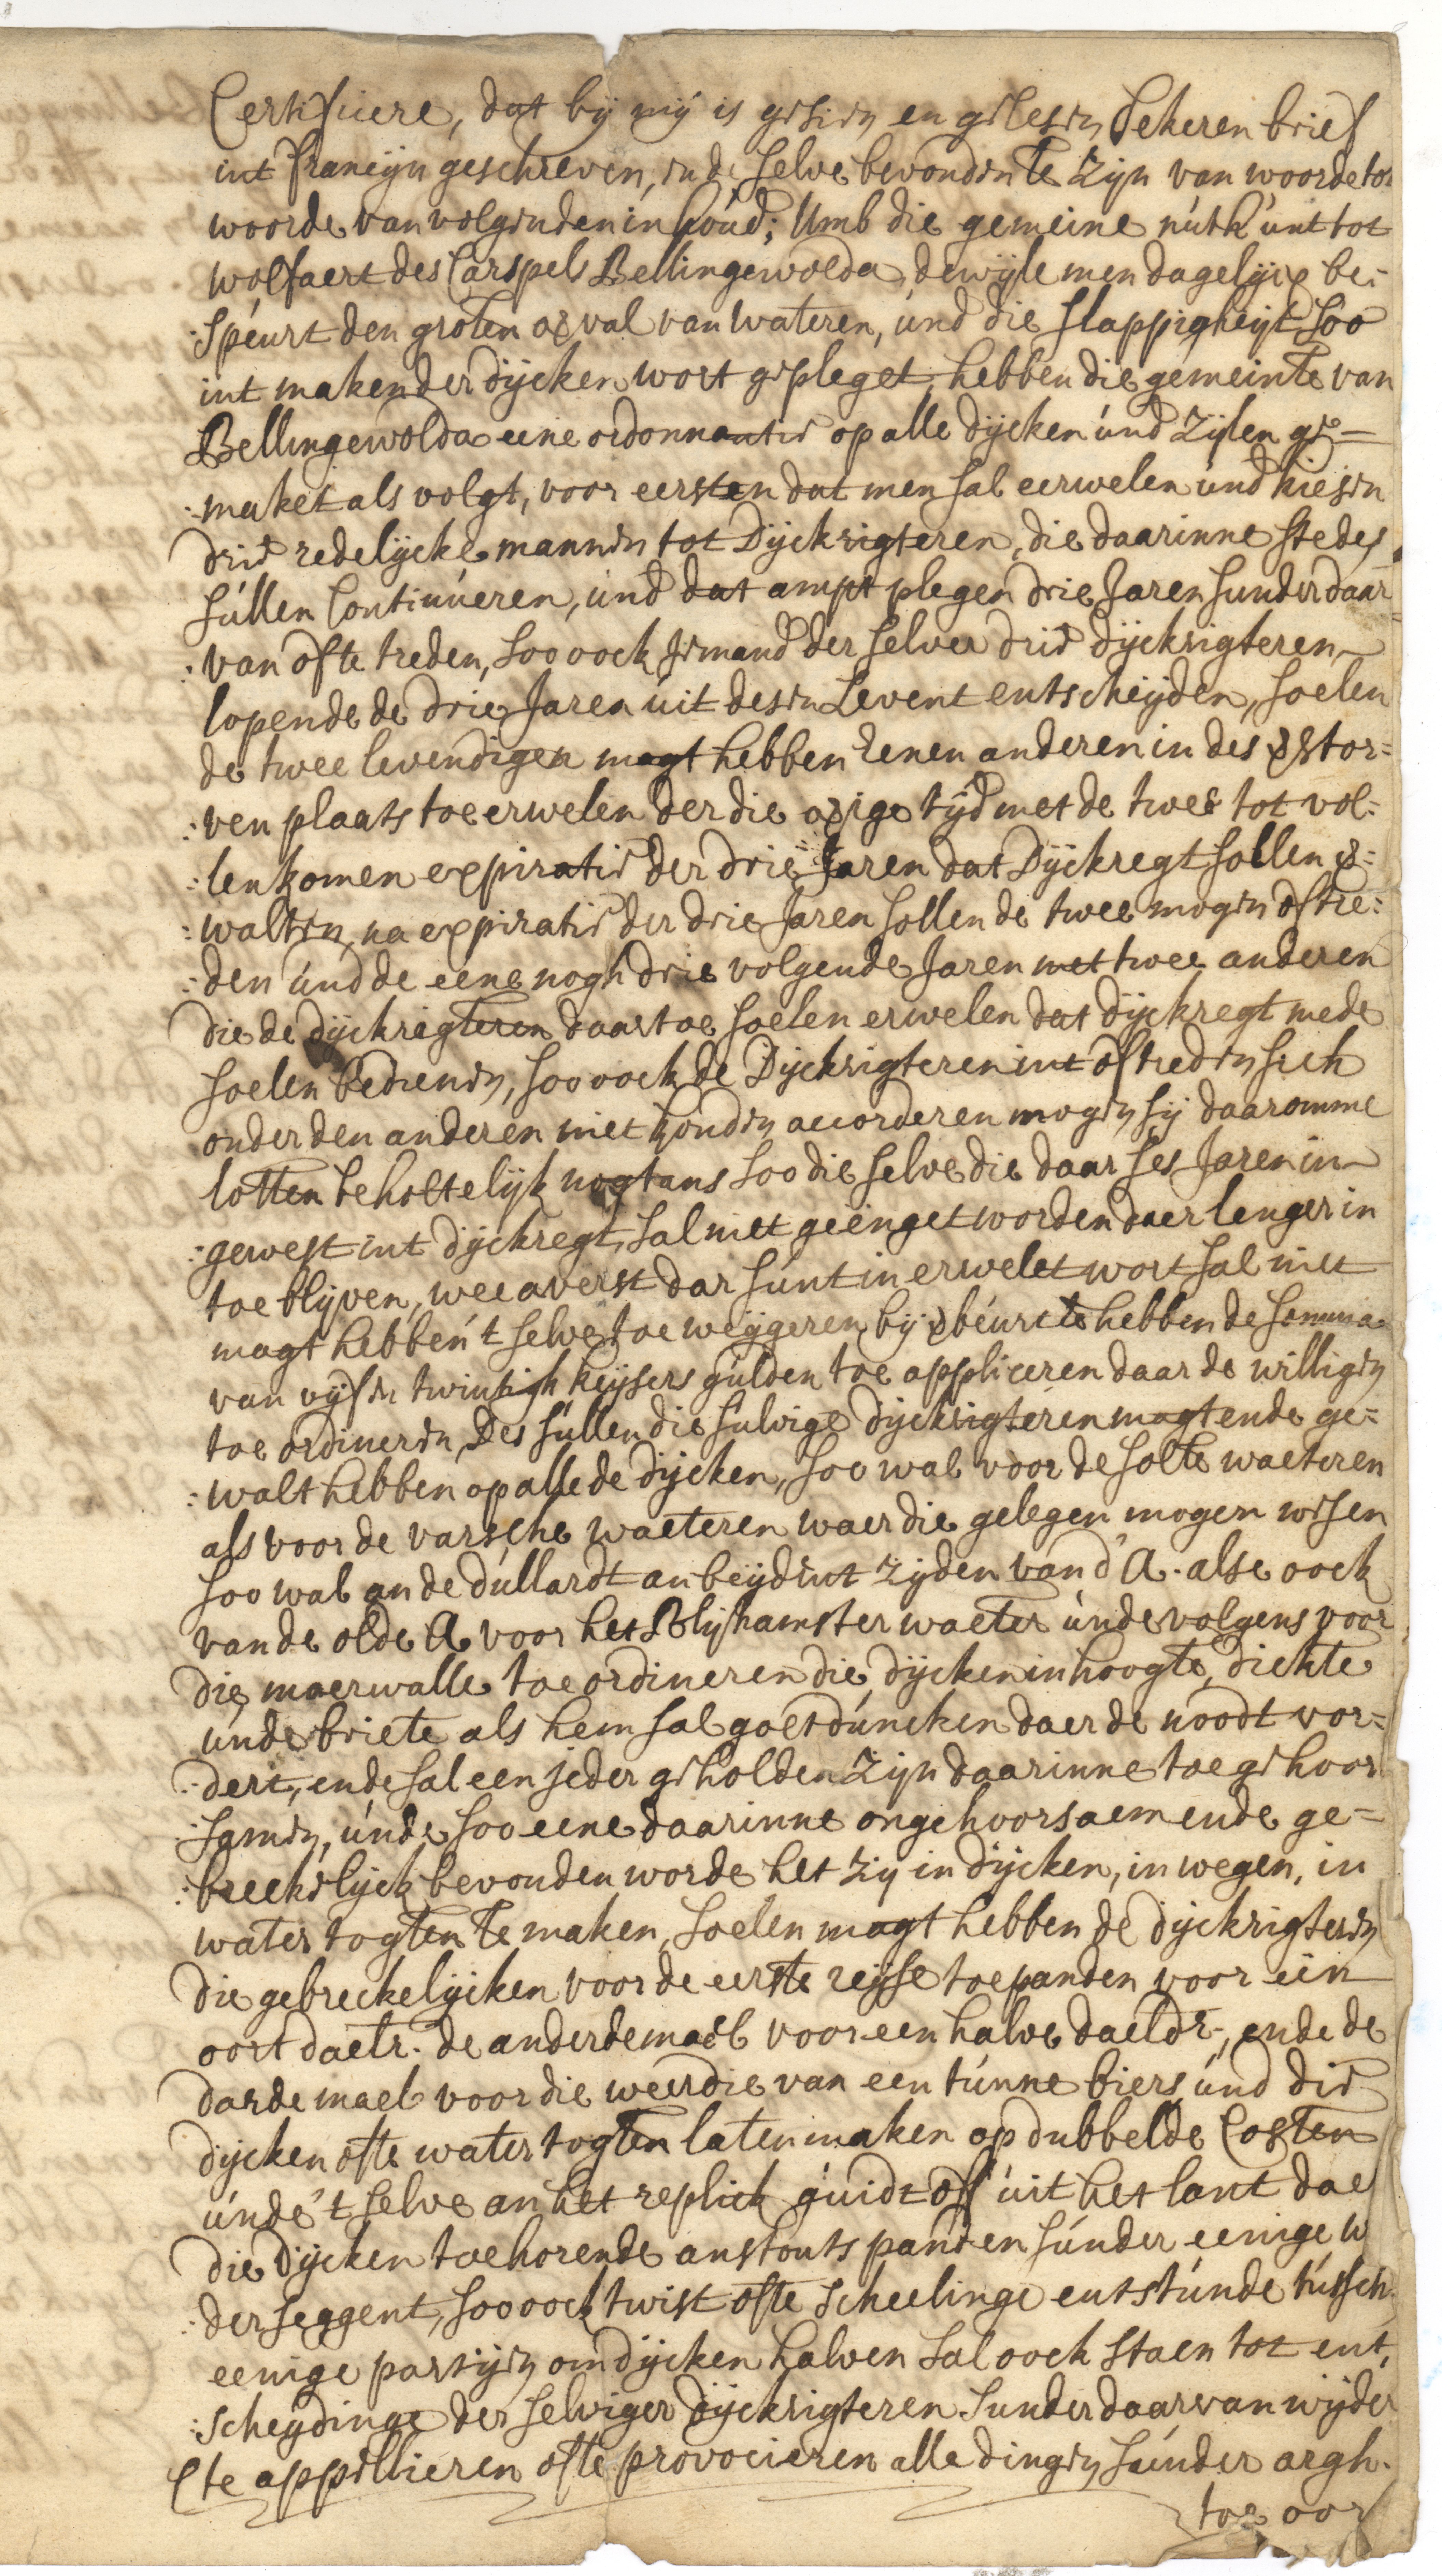 Certificiere, dat bij mij is gesien en gelesen sekeren brief
int francijn geschreven, en de selve bevonden te zijn van woorde tot
woorde van volgenden inhoud; Umb die gemeine nutk unt tot
wolfaert des Carspels Bellingewolda, dewijle men dagelijcx be-
speurt den groten overval van wateren, und die slappigheijt, soo
int maken der dijcken wort gepleget, hebben die gemeinte van
Bellingewolda eene ordonnantie op alle dijcken und zijlen ge-
maket als volgt, voor eersten dat men sal eerwelen und kiesen
drie redelijcke mannen tot Dijckrigteren, die daarinne stedes
sullen continueren, und dat ampt plegen drie Jaren sunder daar
van ofte treden, soo oock jemand der selver drie dijckrigteren
lopende de drie Jaren uit desen Levent entscheijden, soelen
de twee levendigen magt hebben eenen anderen in des verstor-
ven plaats toe erwelen der die overige tijd met de twee tot vol-
lenkomen expiratie der drie Jaren dat Dijckregt sollen ver-
walten, na expiratie der drie Jaren sollen de twee mogen oftre-
den und de eene nogh drie volgende Jaren met twee anderen
die de dijckrigteren daartoe soelen erwelen dat dijckregt mede
soelen bedienen, soo oock de Dijckrigteren int oftreden sich
onder den anderen niet konden accorderen mogen sij daaromme
lotten beholtelijk nogtans soo die selve die daar ses Jaren in
gewest int dijckregt, sal niet geenget worden daer lenger in
toe blijven, wee averst dar sunt in erwelet wort sal niet
magt hebben 't selve toe weijgeren bij verbeurte hebben de somma
van vijf en twintigh keijsers gulden toe appliceren daar de willigen
toe ordineren, Des sullen die sulvige dijckrigteren magt ende ge-
walt hebben op alle de dijcken, soo wal voor de solte waeteren
als voor de varsche waeteren waer die gelegen mogen wesen
soo wal an de dullardt an beijdent zijden van d'A. alse oock
van de olde A voor het Blijhamster waeter unde volgens voor
die moerwalle toe ordineren die dijcken in hoogte, dickte
unde briete als hem sal goetduncken daer de noodt vor-
dert, ende sal een jeder geholden zijn daarinne toe gehoor
samen, unde soo eene daarinne ongehoorsaem ende ge-
breekelijck bevonden worde het zij in dijcken, in wegen, in
water togten te maken, soelen magt hebben de dijckrigteren
die gebreckelijcken voor de eerste reijse toe panden voor een
oort daelr. de anderdemael voor een halve daeldr, ende de
darde mael voor die weerdie van een tunne biers und die
dijcken ofte water togten laten maken op dubbelde Costen
unde 't selve an het replick guidt off uit het lant dae
die Dijcken toehorende anstonts panden sunder eenige w
der seggent, soo oock twist ofte scheelinge entstunde tussch
eenige partijen om dijcken halven sal oock staen tot ent,
scheijdinge der selviger dijckrigteren sunder daar van wijder
te appellieren ofte provocieren alle dingen sunder argh.
toe oor